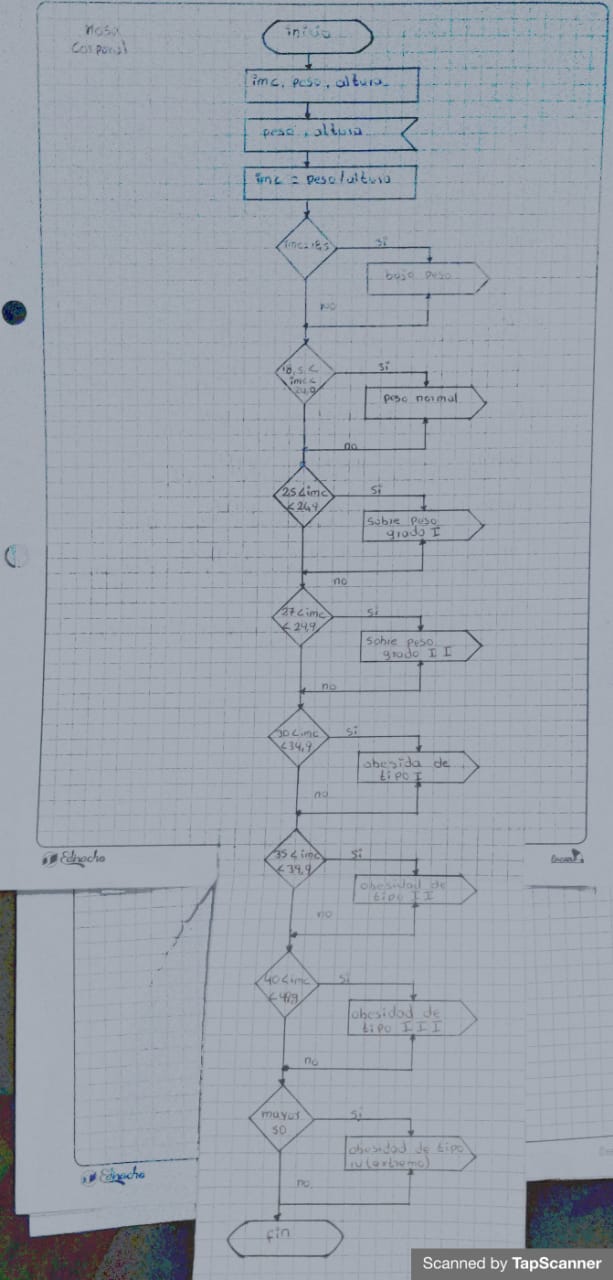 masa
corporal
inicio
imc, peso, altura
peso, altura
imc = peso/altura
si
bajo peso
no
18,5 <
imc <
24,9
si
peso normal
no
25 < imc
< 26,9
si
sobre peso
grado I
no
27 < imc
< 29,9
si
sobre peso
grado II
no
30 < imc
< 34,9
si
obesida de
tipo I
no
35 < imc
< 39,9
si
obesidad de
tipo II
no
40 < imc
< 49,9
si
obesidad de
tipo III
no
mayus
50
si
obesidad de tipo
iv (extremo)
no
fin
Ednacho
Ednacho
Scanned by TapScanner